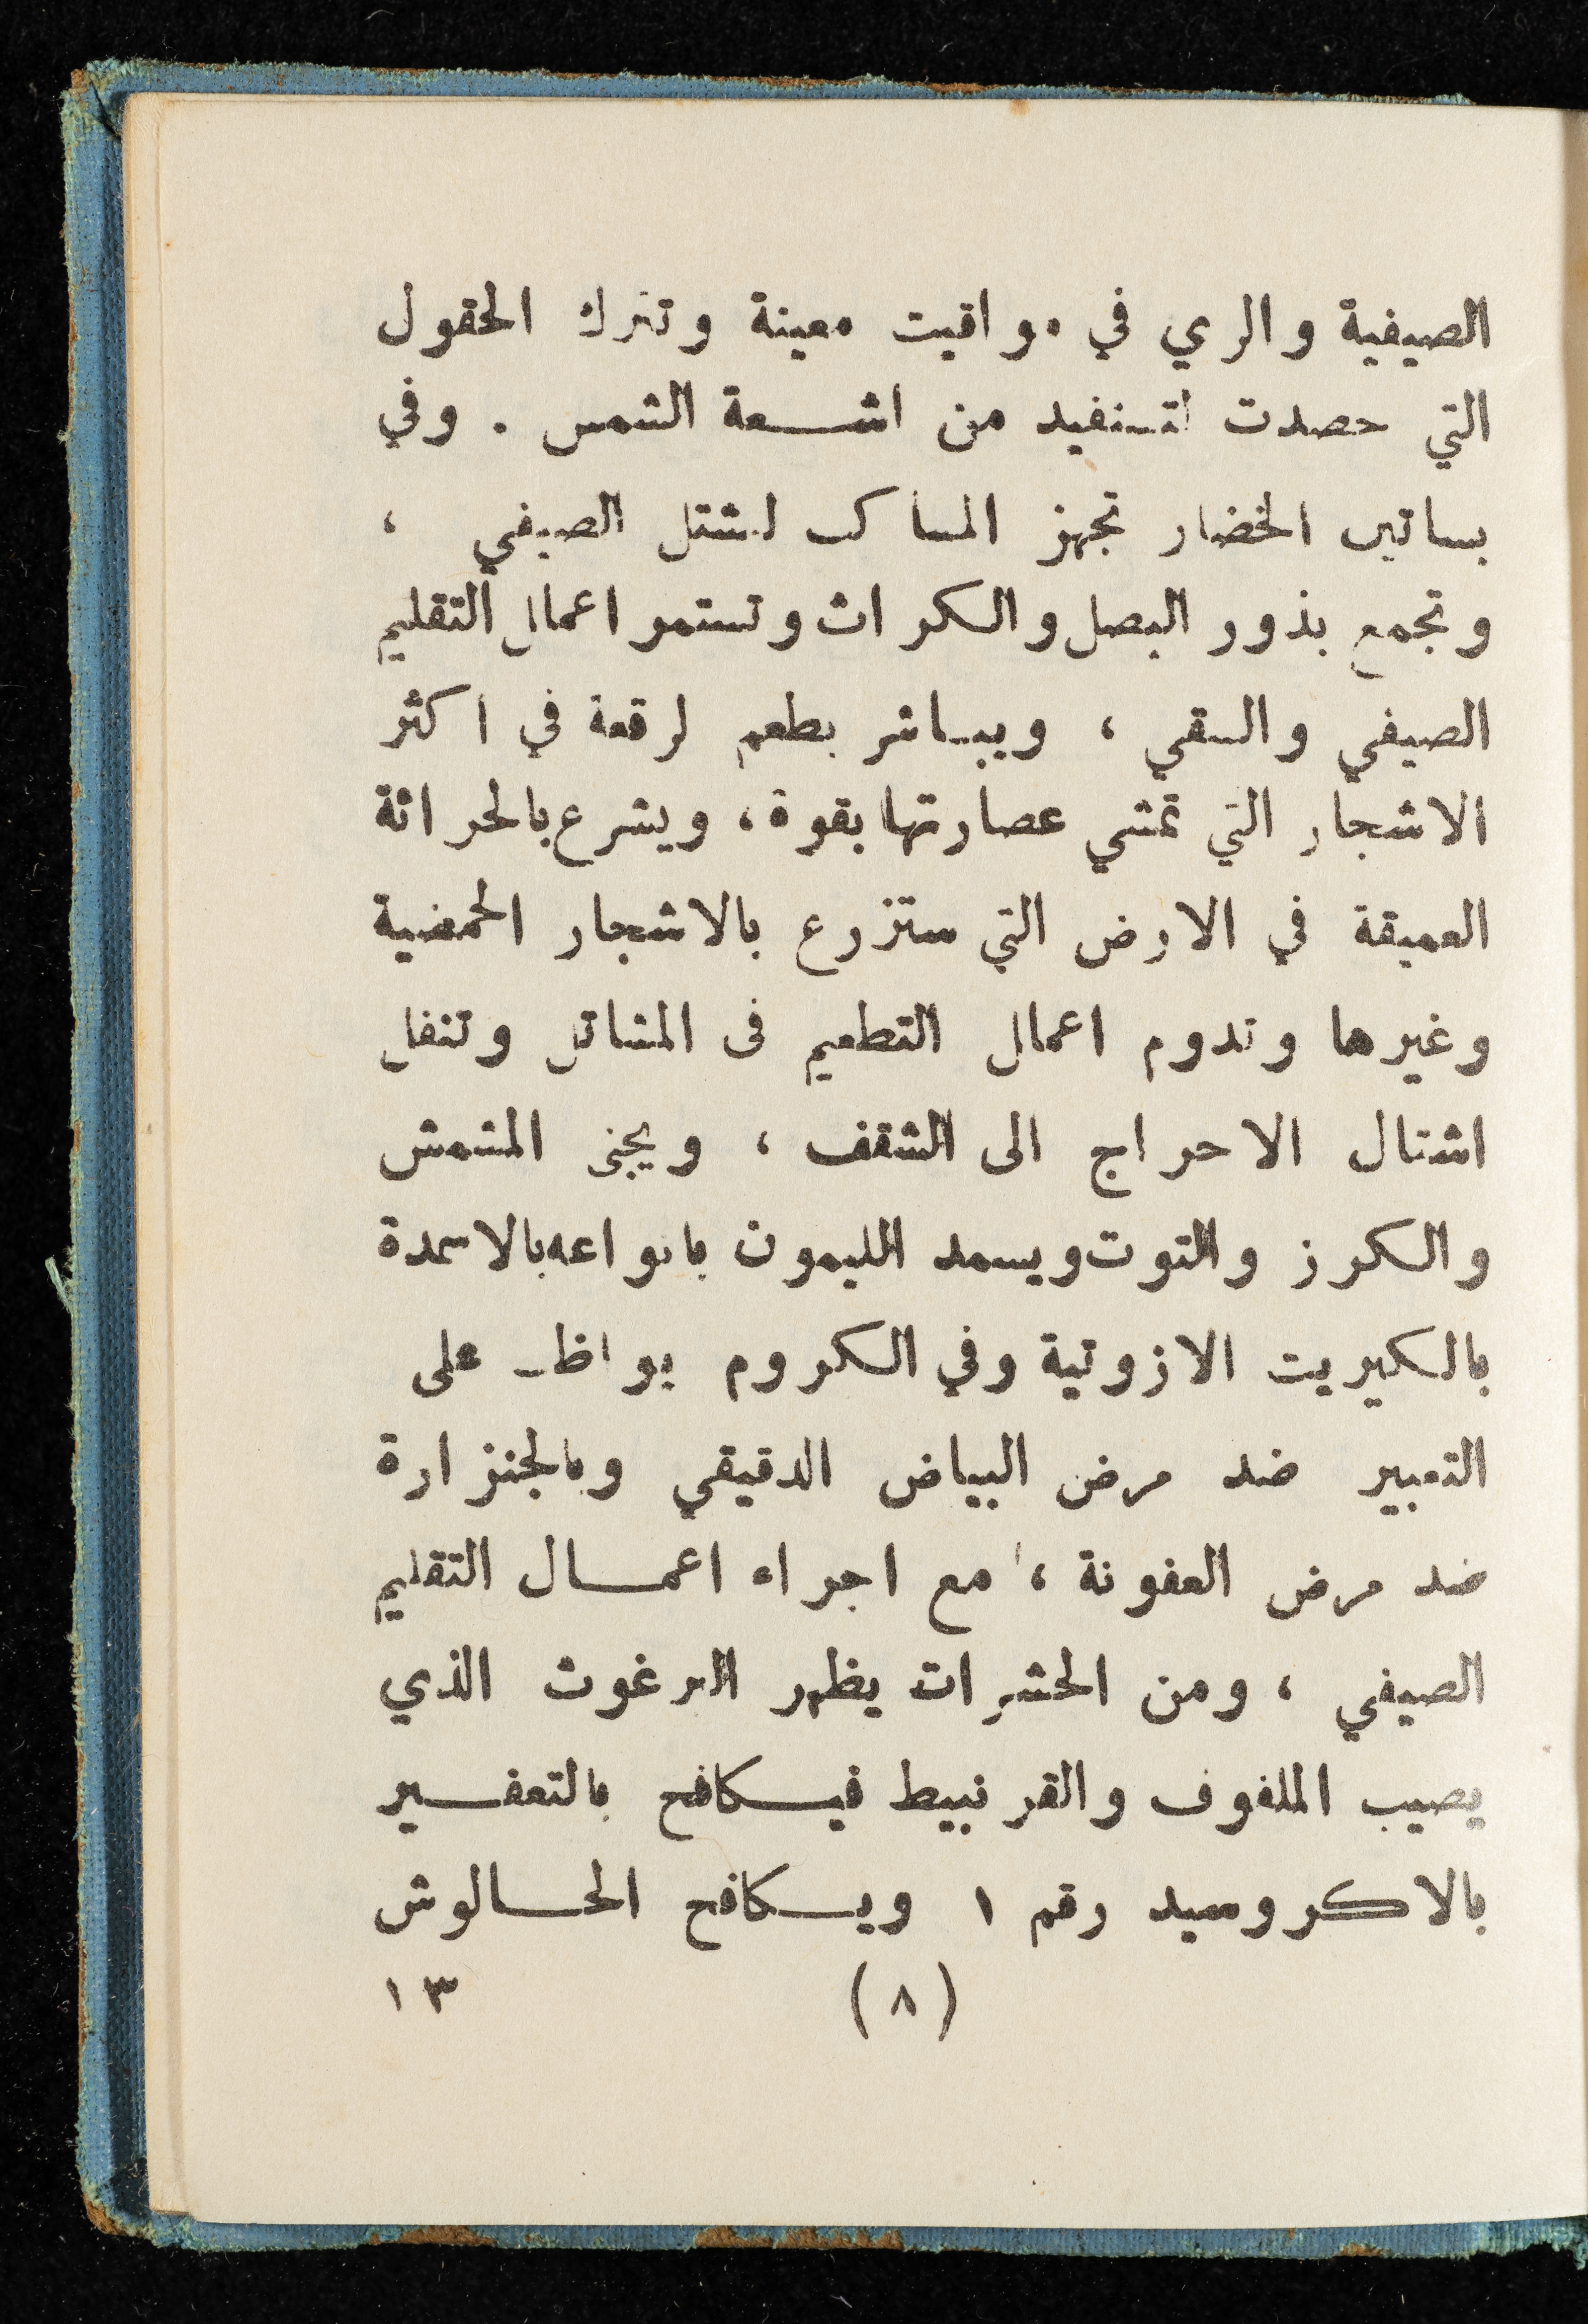 الصيفية والري في مواقيت معينة وتترك الحقول
التي حصدت لتستفيد من اشـعة الشمس . وفي
بساتين الخضار تجهز المساكب للشتل الصيفي ،
وتجمع بذور البصل والكراث وتستمر اعمال التقليم
الصيفي والسقي ، ويباشر بطعم الرقعة في اكثر
الاشجار التي تمشي عصارتها بقوة ، ويشرع بالحراثة
العميقة في الارض التي ستزرع بالاشجار الحمضية
وغيرها وتدوم اعمال التطعيم في المشاتل وتنقل
اشتال الاحراج الى الشقف ، ويجنى المشمش
والكرز والتوت ويسمد الليمون بانواعه بالاسمدة
بالكبريت الازوتية وفي الكروم يواظب على
التعبير ضد مرض البياض الدقيقي وبالجنزارة
ضد مرض العفونة ، مع اجراء اعمـال التقليم
الصيفي ، ومن الحشرات يظهر البرغوث الذي
يصيب الملفوف والقرنبيط فيـكافح بالتعفـير
بالاكروسيد رقم ١ ويـكافح الحـالوش
(٨)
١٣